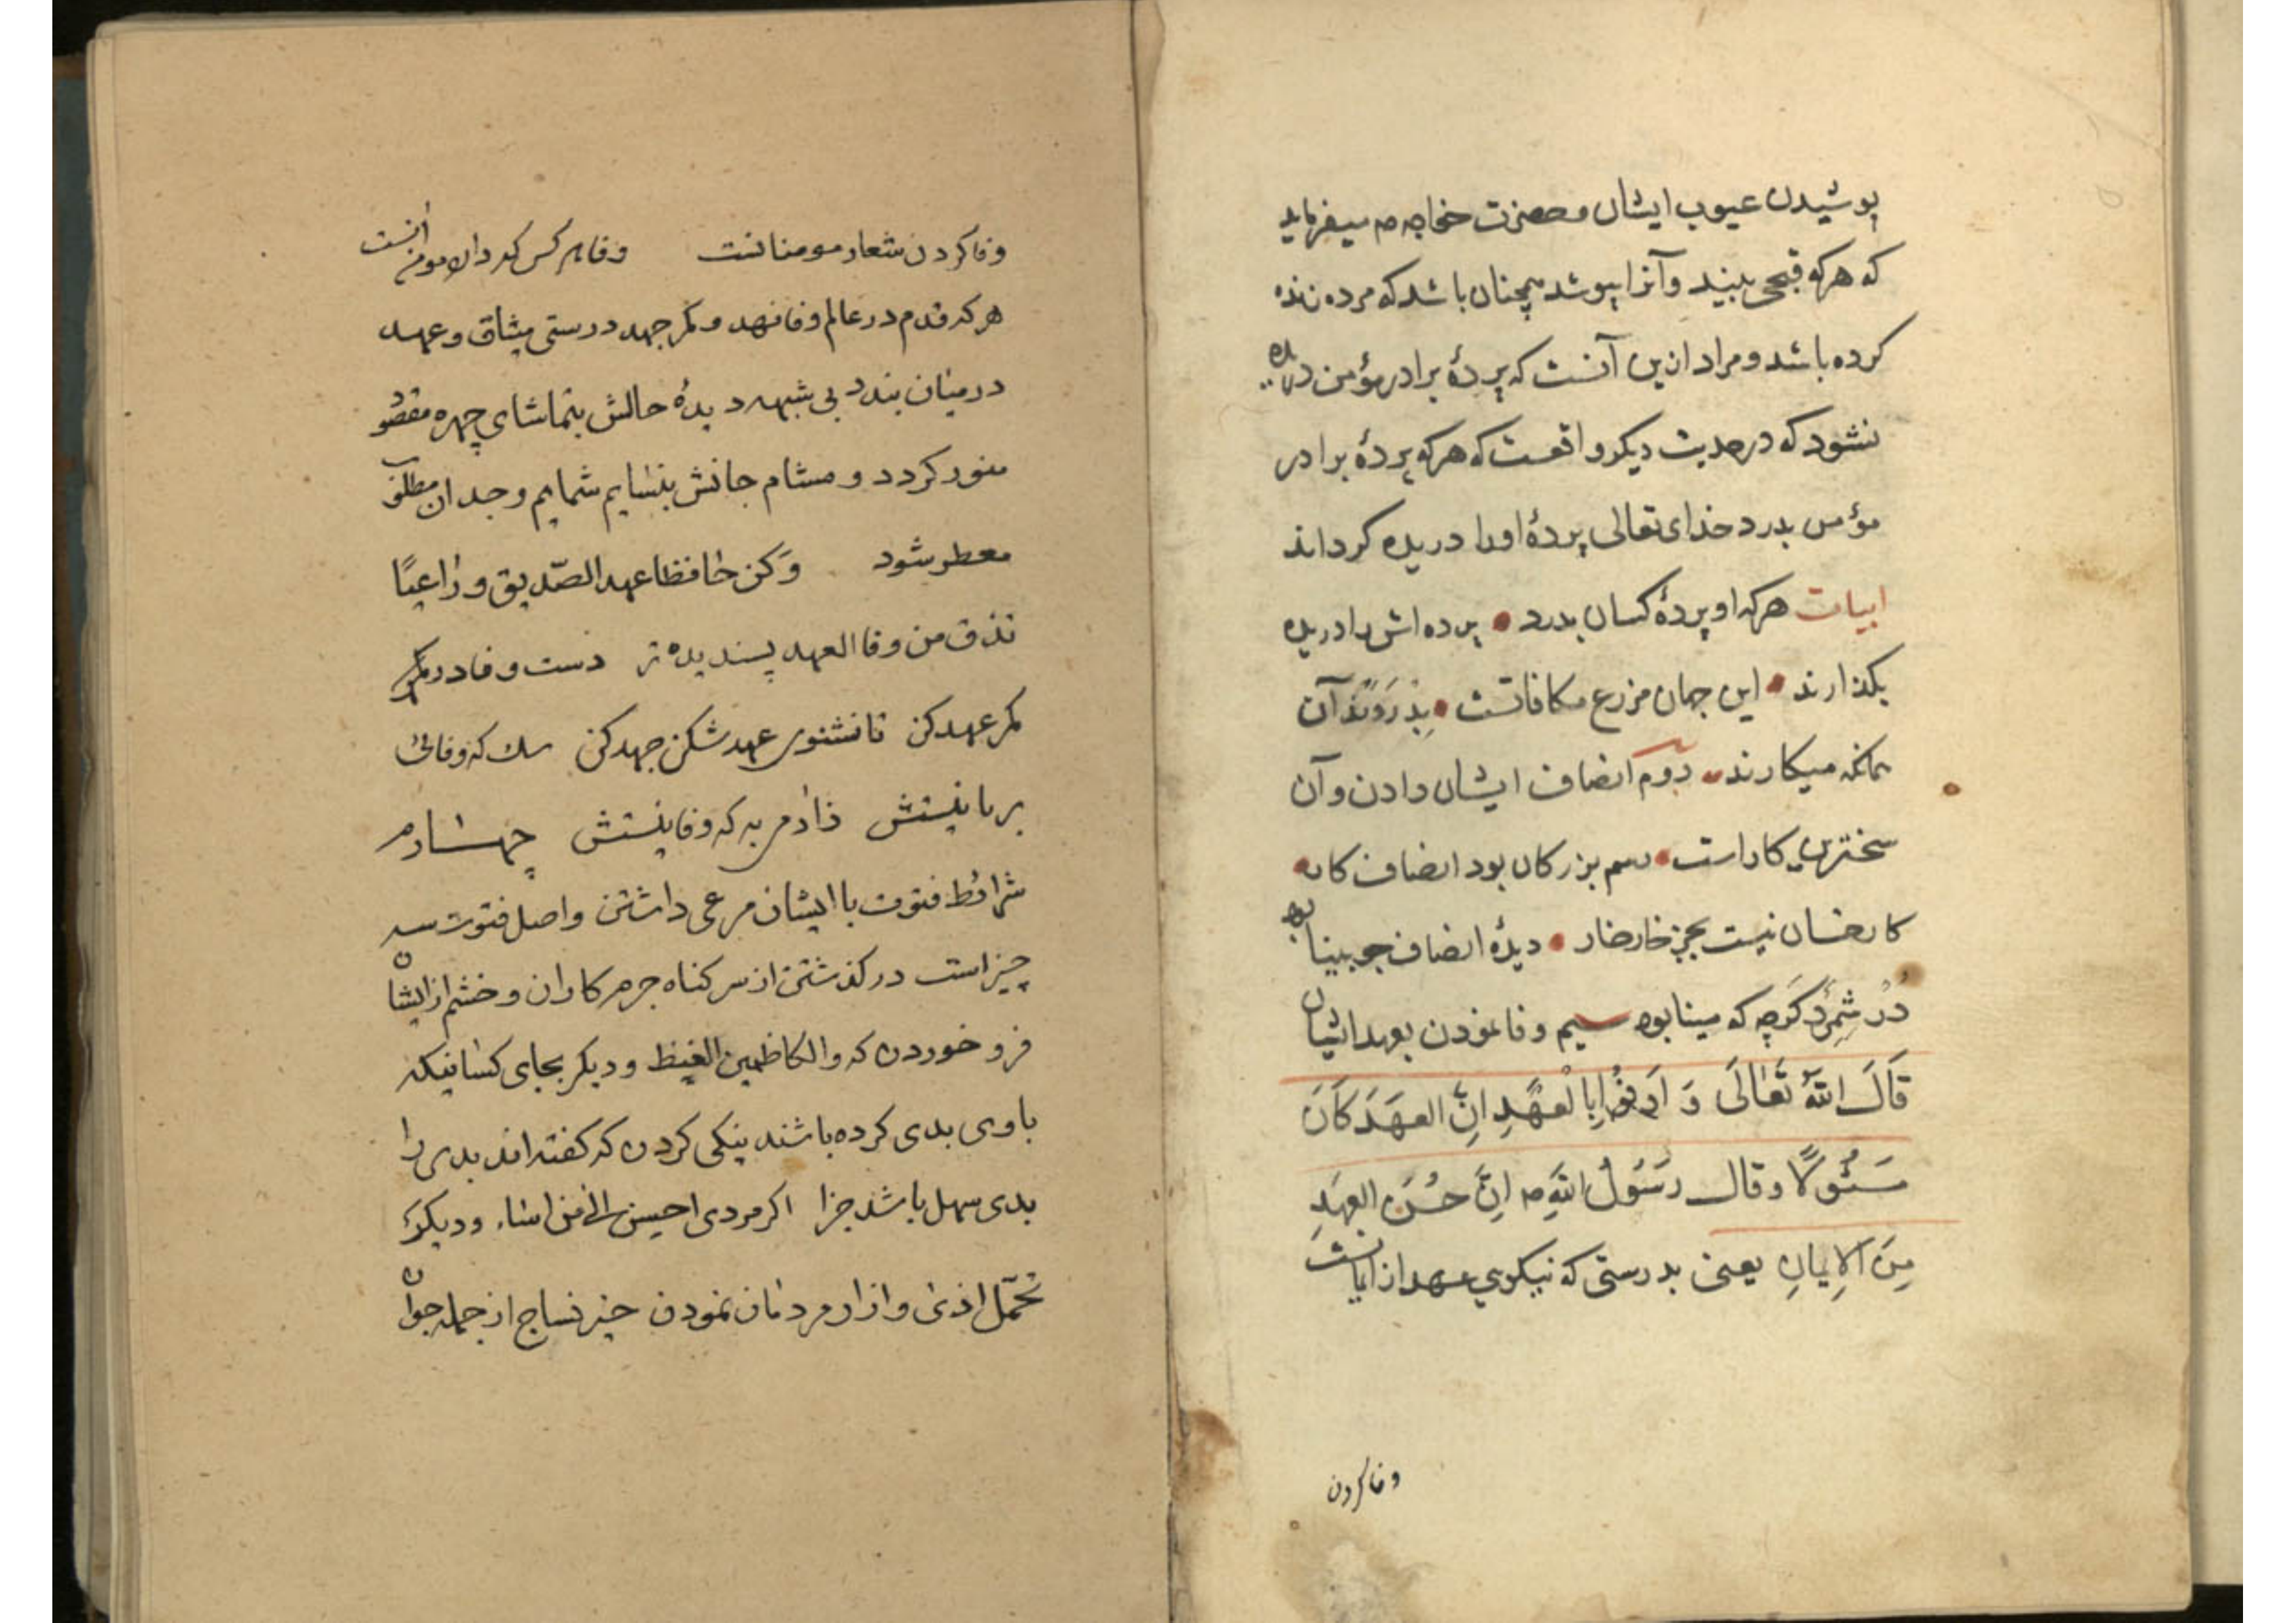 پوشیدن عیوب ایشان و حضرت خواجه صه میفرماید
که هرکه قبحی ببیند و آنرا بپوشد همچنان باشد که مرده زنده
کرده باشد و مراد ازین آنست که پردهٔ برادر مؤمن دریده
نشود که در حدیث دیکر واقعست که هرکه پردهٔ برادر
مؤمن بدرد خدای تعالی پردهٔ اورا دریده کرداند
ابیات هرکه او پردهٔ کسان بدرد • پرده اش را دریده
بکذارند • این جهان مزرع مکافاتست • بِدْرَوَنْد آن
همانکه میکارند دوّم انصاف ایشان دادن و آن
سخترین کاراست • رسم بزرکان بود انصاف کار •
کار خسان نیست بجز خارخار • دیدهٔ انصاف چو بینا بود
دُرْ شِمُرَد کرچه که مینا بود سیم وفا نمودن بعهد ایشان
قَالَ اللّهُ تَعَالَی وَ اَوفُوا بِالْعَهْدِ اِنَّ العَهَدَ کَانَ
مَسْئُولًا و قال رَسُولُ اللّهِ صه اِنَّ حُسْنَ العهَدِ
مِنَ الاِیمانِ یعنی بدرستی که نیکویی عهد از ایمانست
وفا کردن
وفا کردن شعار مومنانست وفا هر کس که دارد مومن آنست
هرکه قدم در عالم وفا نهد و کمر جهد درستی میثاق و عهد
در میان بندد بی شبهه دیدهٔ حالش بتماشای چهره مقصود
منور کردد و مشام جانش بنسایم شمایم وجدان مطلوب
معطر شود وَکن حافظا عهد الصّدیق و راعیًا
تذق من وفا العهد پسندیده تر دست وفا در کمر
کمر عهد کن تا نشنوی عهد شکن جهد کن سك که وفائی
بر بایستش ز ادمی به که وفا نیستش چهارم
شرائط فتوت با ایشان مرعی داشتن و اصل فتوت سه
چیز است در کذشتن از سر کناه جرم کاران و خشم از ایشان
فرو خوردن که والکاظمین الغیظ و دیکر بجای کسانیکه
باوی بدی کرده باشند نیکی کردن که کفته اند بدی را
بدی سهل باشد جزا اکر مردی احسن الی من اساء و دیکر
تحمّل اذی و ازار مردمان نمودن خیر نساج از جمله جوان